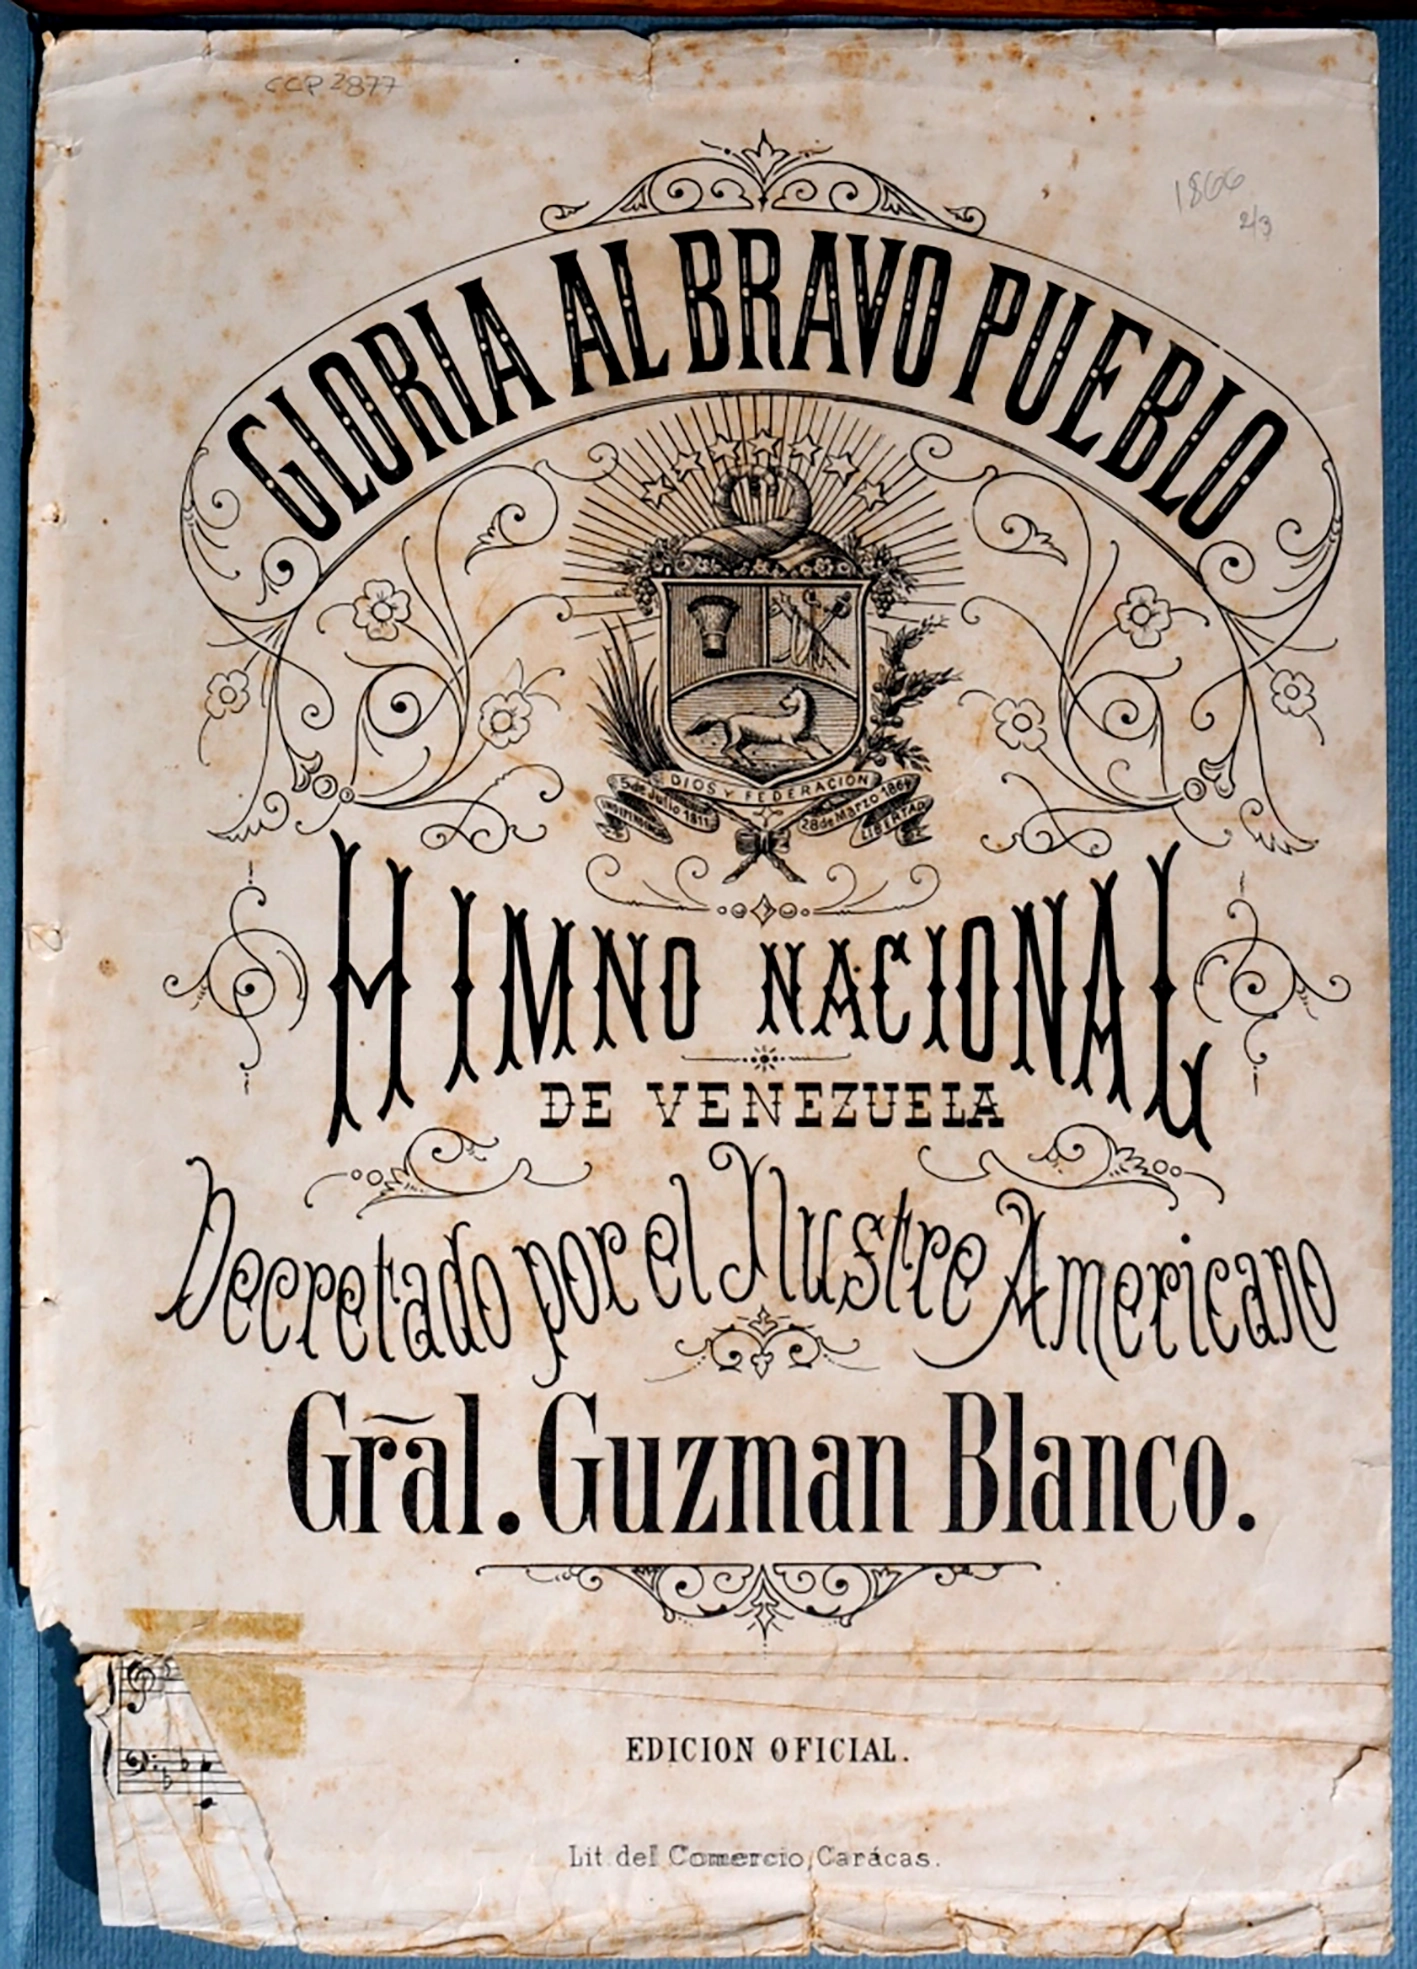 CCP 2877
1866
2/3
GLORIA AL BRAVO PUEBLO
DIOS Y FEDERACION
5 de Julio 1811
28 de Marzo 1864
INDEPENDENCIA
LIBERTAD
HIMNO NACIONAL
DE VENEZUELA
Decretado por el Ilustre Americano
Gral. Guzman Blanco.
EDICION OFICIAL.
Lit. del Comercio, Carácas.